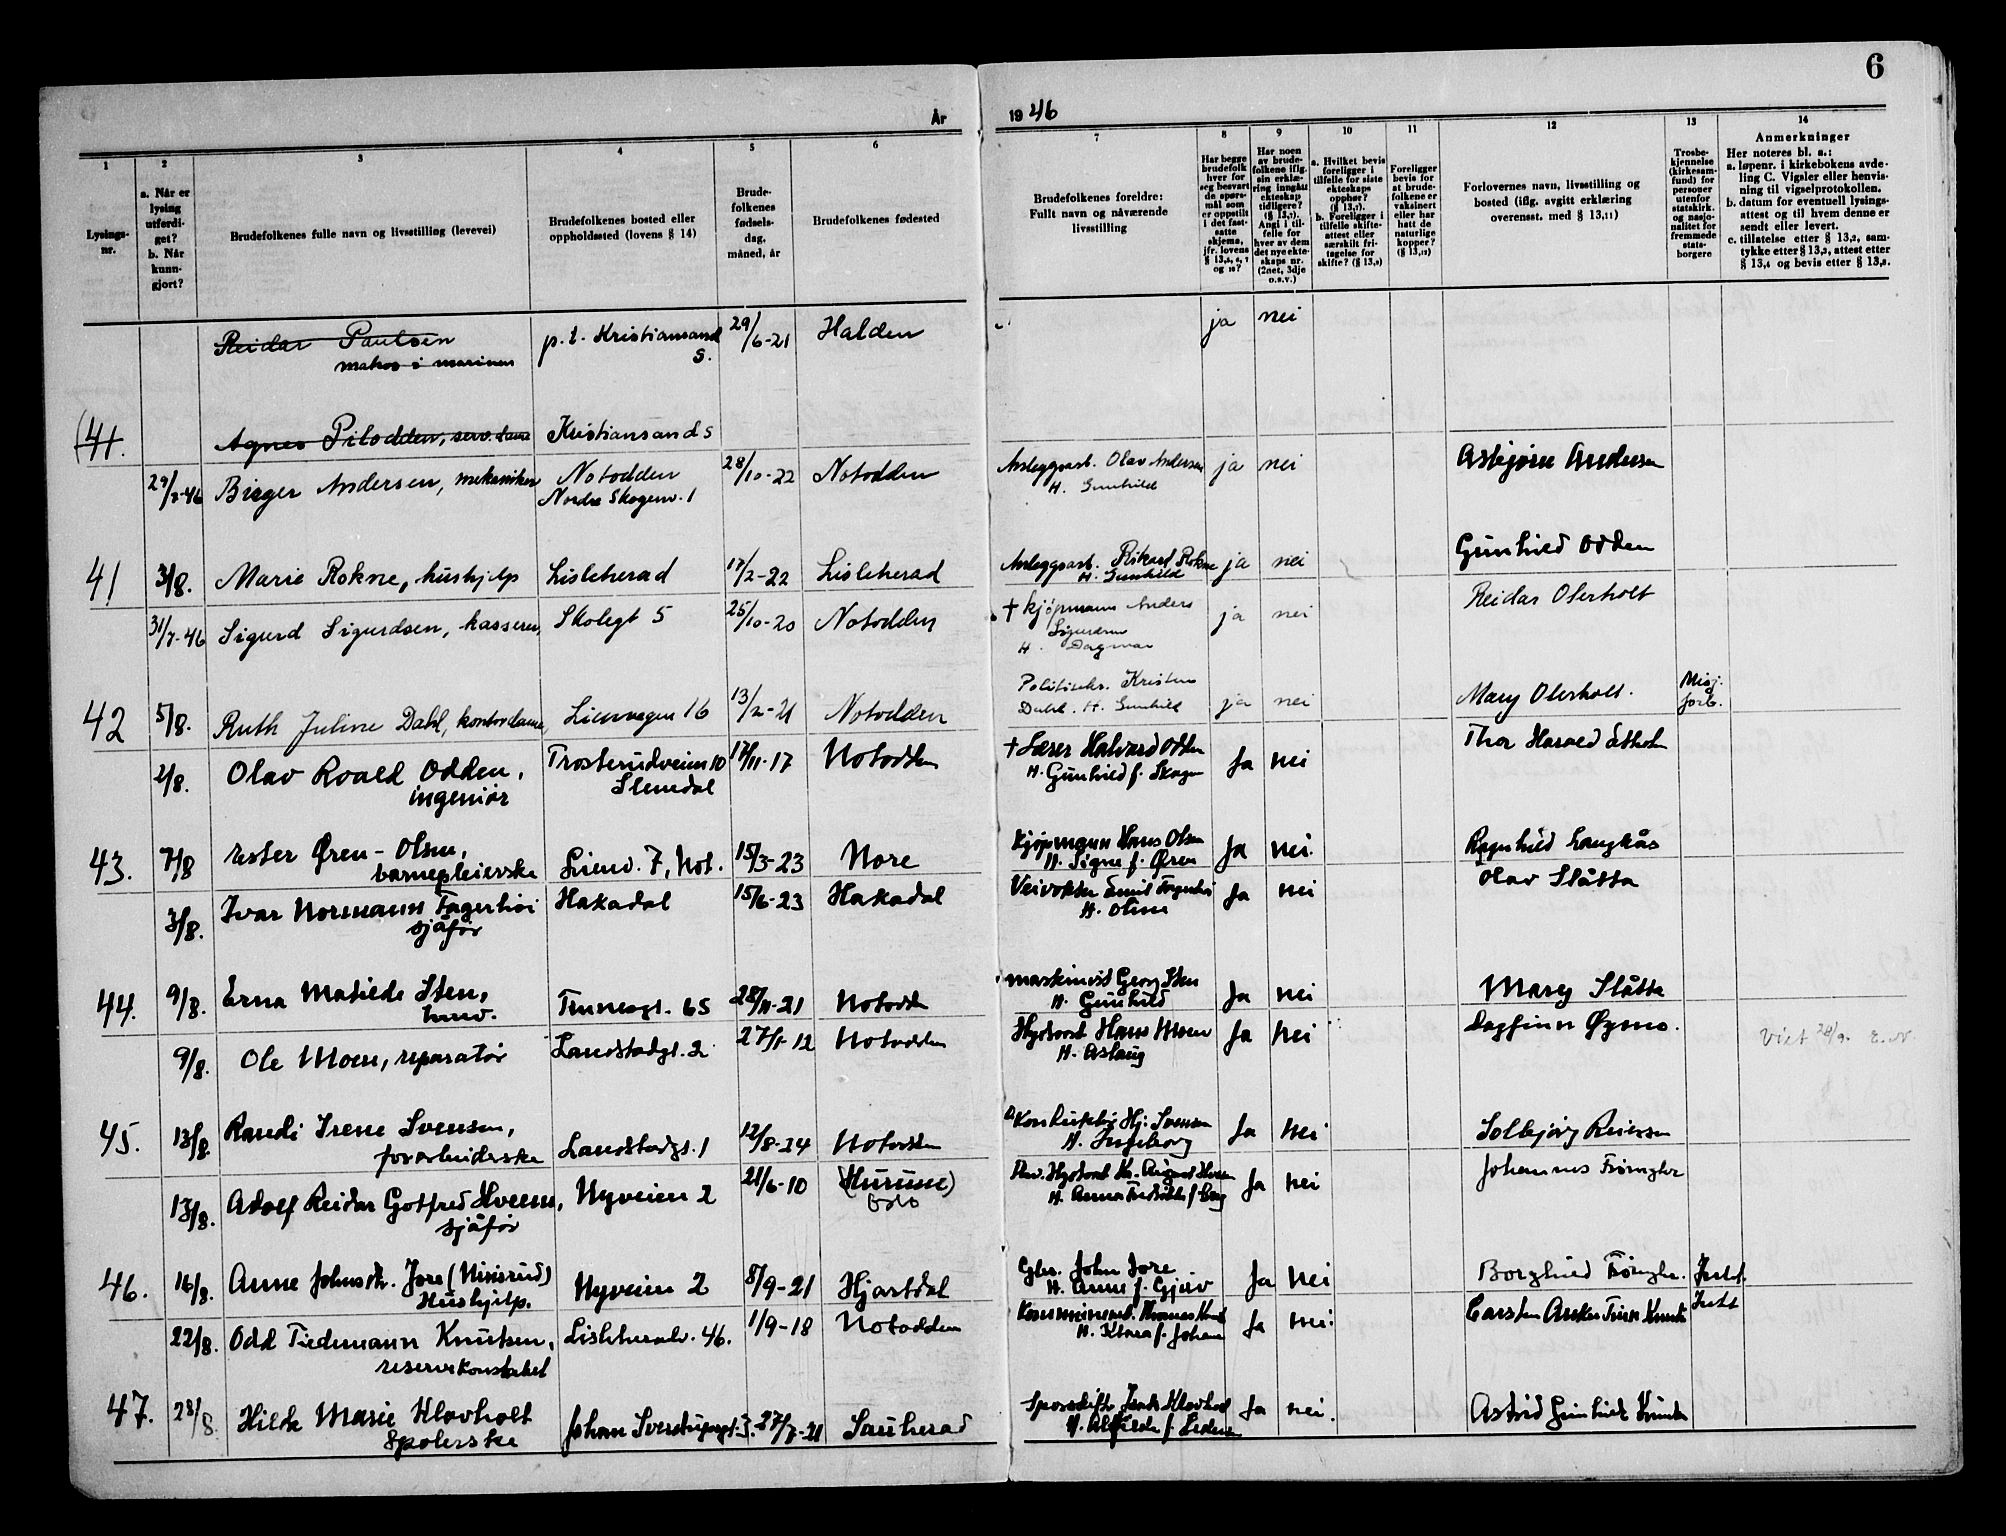 6
År
19 46
1
Lysings-
nr.
2
a. Når er
lysing
utferdi-
get?
b. Når
kunn-
gjort?
3
Brudefolkenes fulle navn og livsstilling (levevei)
4
Brudefolkenes bosted eller
oppholdssted (lovens § 14)
5
Brude-
folkenes
fødsels-
dag,
måned, år
6
Brudefolkenes fødested
7
Brudefolkenes foreldre:
Fullt navn og nåværende
livsstilling
8
Har begge
brudefolk
hver for
seg besvart
de spørs-
mål som
er oppstilt
i det fast-
satte
skjema,
jfr. lovens
9
Har noen
av brude-
folkene iflg.
sin erklæ-
ring inngått
ekteskap
tidligere?
Angi i til-
felle for
hver av dem
det nye ekte-
skaps nr.
(2net, 3dje
o.s.v.)
10
a. Hvilket bevis
foreligger i
tilfelle for siste
ekteskaps
opphør?
b. Foreligger i
tilfelle skifte-
attest eller
særskilt fri-
tagelse for
skifte?
11
Foreligger
bevis for
at brude-
folkene er
vaksinert
eller har
hatt de
naturlige
kopper?
12
Forlovernes navn, livsstilling og
bosted (iflg. avgitt erklæring
overensst. med § 13,11)
13
Trosbe-
kjennelse
(kirkesam-
fund) for
personer
utenfor
statskirk.
og nasjo-
nalitet for
fremmede
stats-
borgere
14
Anmerkninger
Her noteres bl. a.:
a. løpenr. i kirkebokens avde-
ling C. Vigsler eller henvis-
ning til vigselprotokollen.
b. datum for eventuell lysings-
attest og til hvem denne er
sendt eller levert.
c. tillatelse etter § 13,2, sam-
tykke etter § 13,3, attest etter
§ 13,4 og bevis etter § 13,8.
Reidar Paulsen p.t. Kristiansand 29/6-21 Halden ja nei
matros i marinen S.
(41. Agnes Pilodden, serv.dame Kristiansand S
29/7-46 Birger Andersen, mekaniker Notodden 28/10-22 Notodden Anleggsarb. Olav Andersen ja nei Asbjørn Andersen
Nordre Skogenv. 1 H. Gunhild
41 3/8. Marie Rokne, hushjelp Lisleherad 17/2-22 Lisleherad Anleggsarb. Rikard Rokne ja nei Gunhild Odden
H. Gunhild
31/7-46 Sigurd Sigurdsen, kasserer, Skolegt 5 25/10-20 Notodden † Kjøpmann Anders ja nei Reidar Olerholt
Sigurdsen
H. Dagmar
42 5/8. Ruth Juline Dahl, kontordame, Lienvegen 16 13/2-21 Notodden Kristen ja nei Mary Olerholt.
Dahl. H. Gunhild
2/8. Olav Roald Odden, Trosterudveien 10 17/11-17 Notodden † Lærer Halvard Odden Ja nei Thor Harald
ingeniør Slemdal H. Gunhild f. Skogen
43. 7/8 Ester Øren-Olsen, Lienv. 7, Not. 15/3-23 Nore Kjøpmann Hans Olsen Ja nei. Ragnhild Langkås
barnepleierske H. Signe f. Øren
3/8. Ivar Normann Fagerhøi Hakadal 15/6-23 Hakadal Veivokter Emil Fagerhøi Ja nei Olav Slåtta
sjåfør H. Oline
44. 9/8. Erna Matilde Sten, Tinnesgt. 65 28/11-21 Notodden Georg Sten Ja nei Mary Slåtta
H. Gunhild
9/8. Ole Moen, reparatør Landstadgt. 2 27/1-12 Notodden Hans Moen Ja nei Dagfinn Viet 28/9. E.N.
H. Aslaug
45. 13/8 Randi Irene Svensen, Landstadgt. 1 12/8-24 Notodden Hj. Svensen Ja nei Solbjørg
forarbeiderske H. Ingeborg
13/8. Adolf Reidar Gotfred Hveem, Nyveien 2 21/6-10 (Hurum) Ja nei Johannes
sjåfør Oslo
46. 16/8. Anne Johnsdt. Jore (Nisirud) Nyveien 2 8/9-21 Hjartdal Gbr. John Jore Ja nei Borghild
Hushjelp. H. Anne f. Gjøiv
22/8. Odd Tiedemann Knutsen, Lisleheradv. 46. 1/9-18 Notodden Ja nei.
reservekonstabel H. Klara f. Johan
47. 28/8. Hilda Marie Klovholt Johan Sverdrupsgt. 3. 27/7-21 Sauherad Ja nei. Astrid Gunhild
Spolerske